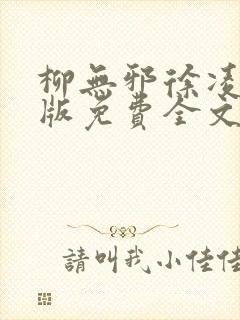 柳無邪徐凌
版免費全文
請叫我小佳佳